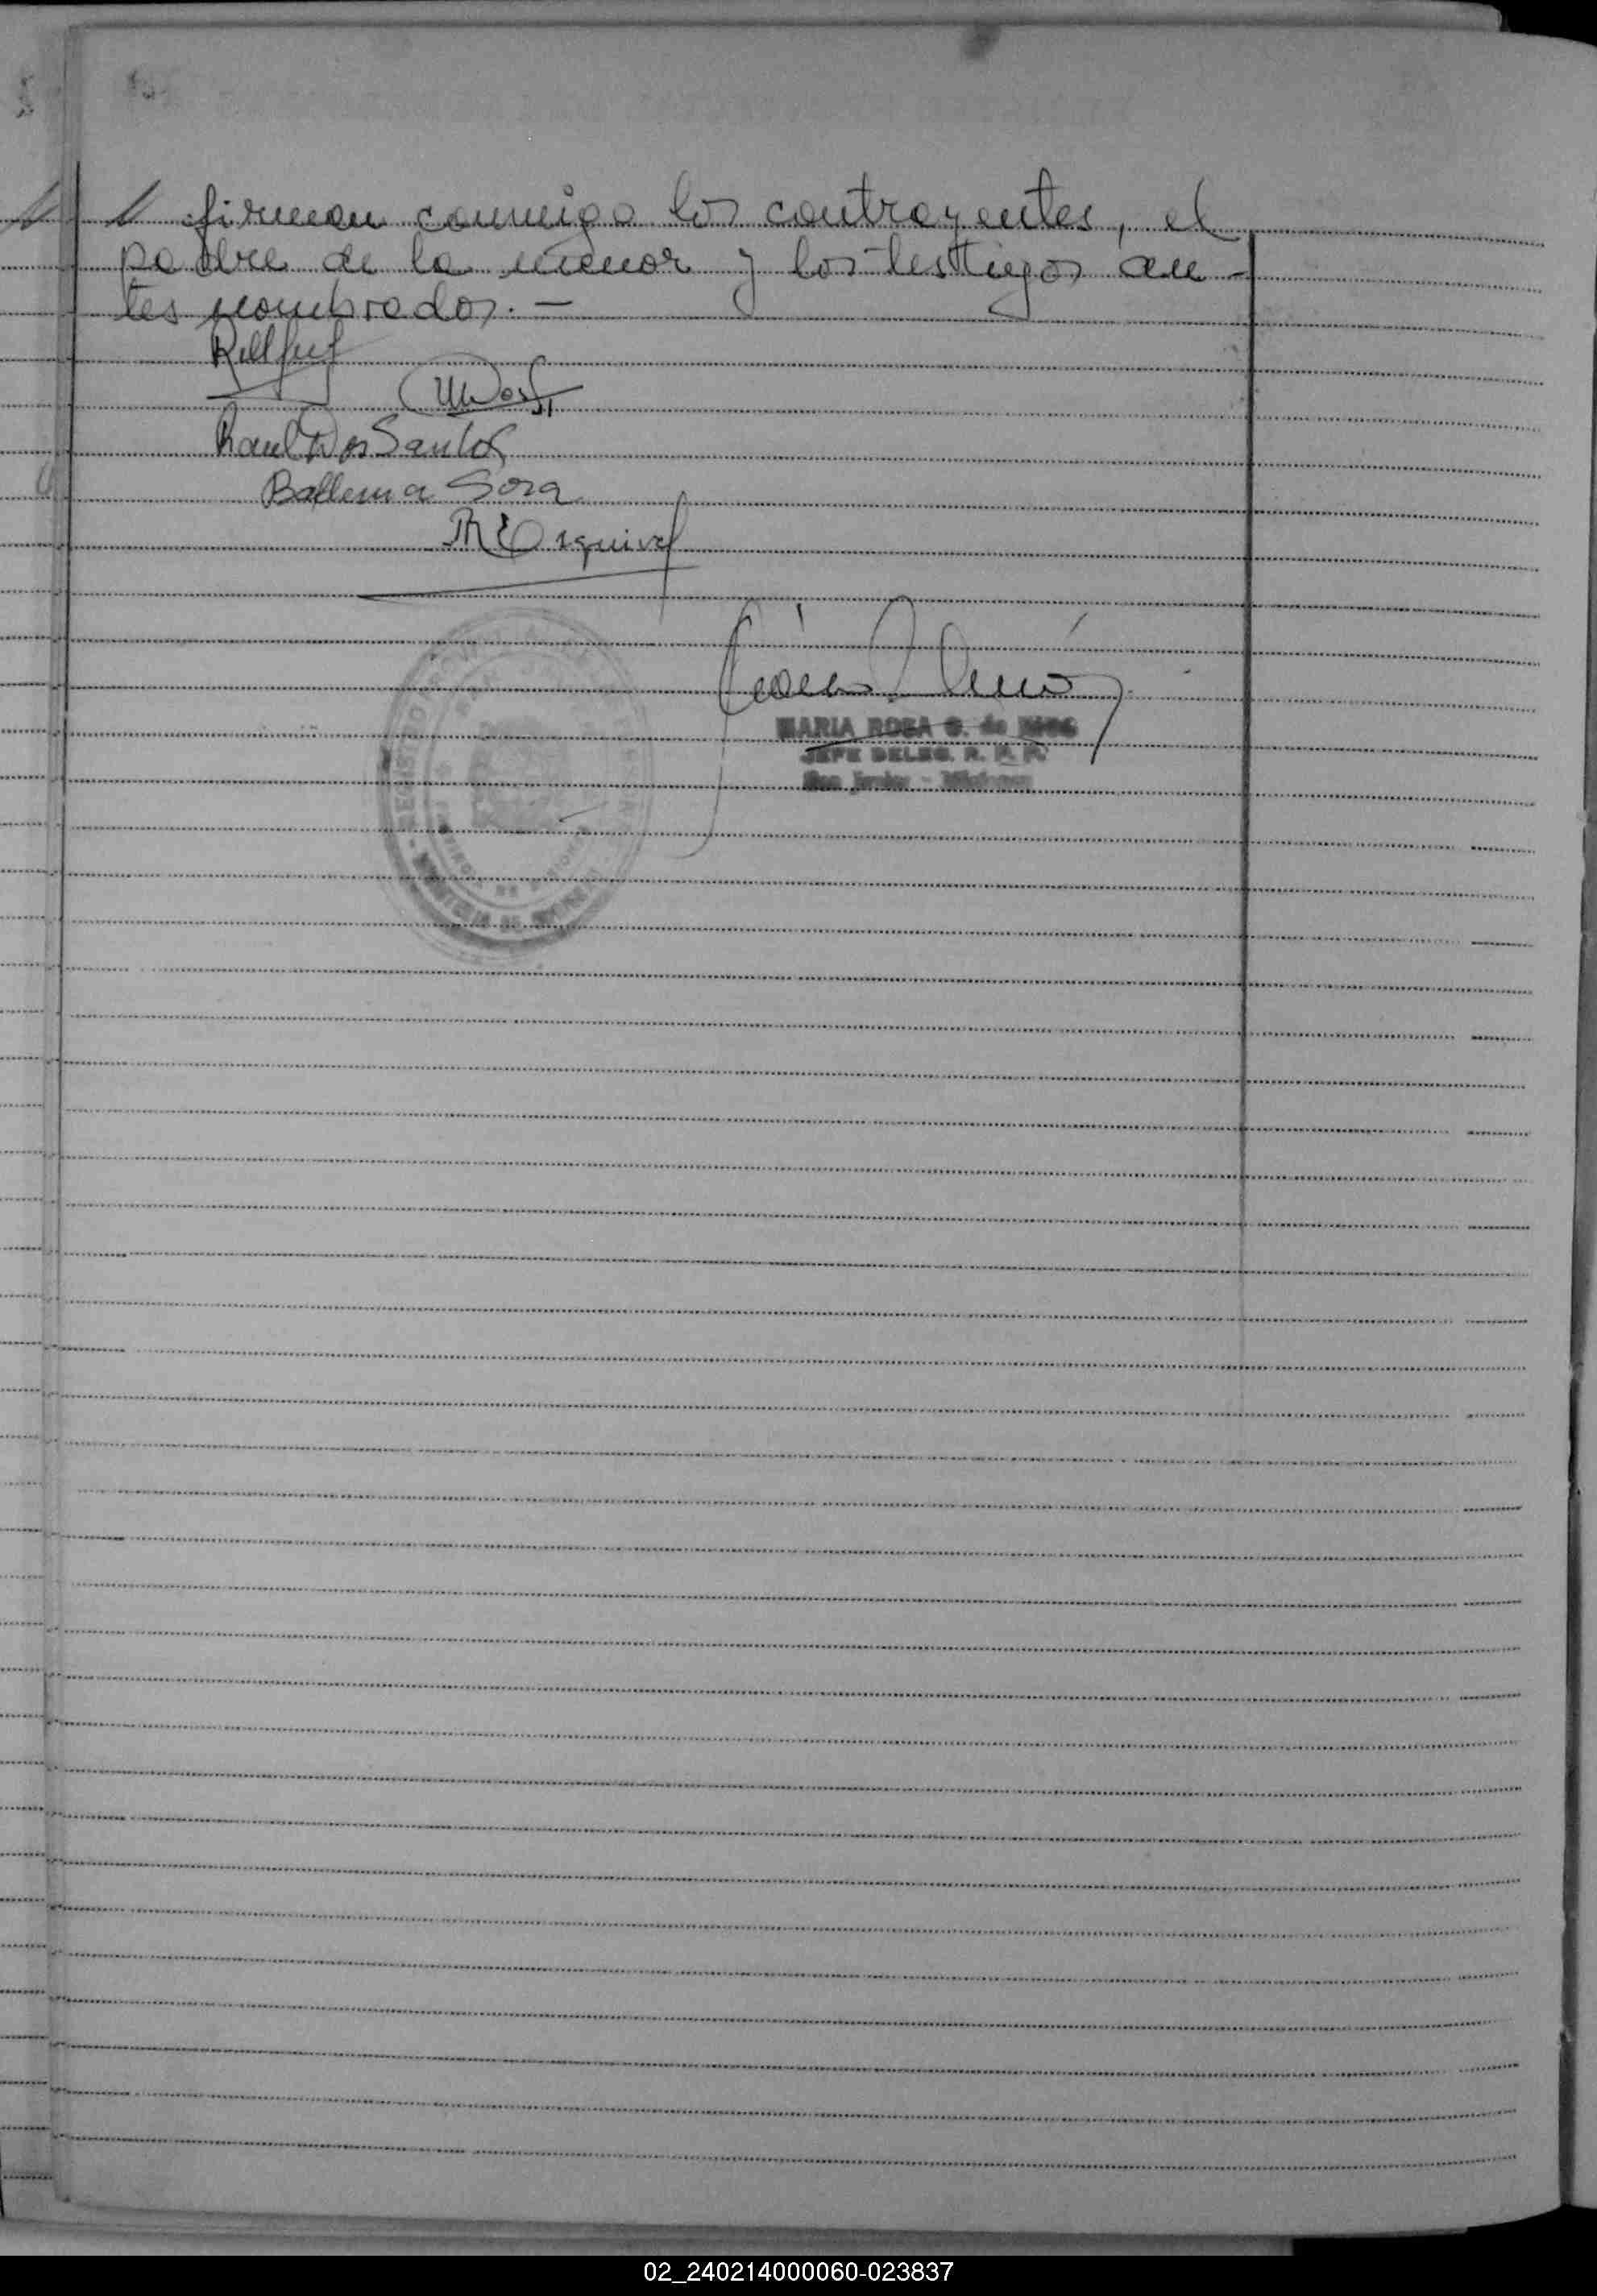 // firman conmigo los contrayentes, el
padre de la menor y los testigos an-
tes nombrados.-
Raul Dos Santos
Ballema Sosa
R Esquivel
MARIA ROSA G. de
JEFE DELEG. R. P. P.
San Javier - Misiones
REGISTRO
PROVINCIA DE MISIONES
02_240214000060-023837